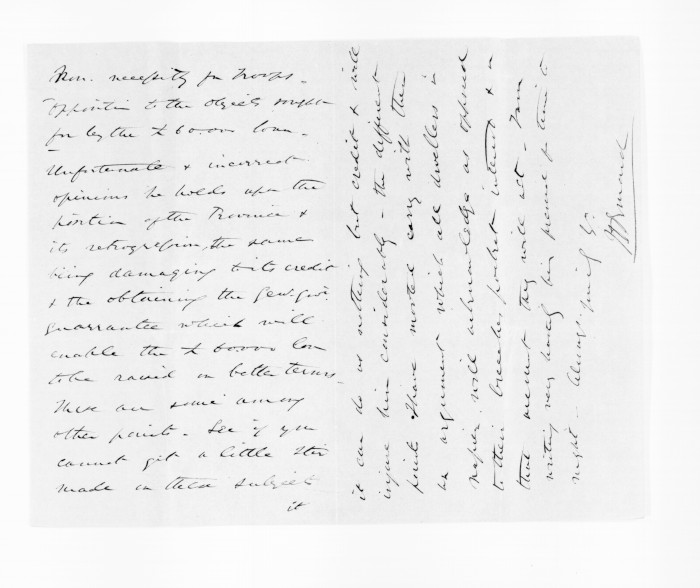 Mon. necessity for troops -
opposition to the objects sought
for by the £60.000 loan -
Unfortunate & incorrect
opinions he holds upon the
position of the Province &
its retrogression, the same
being damaging to its credit
& the obtaining the Gen. Gov.
guarrantee which will
enable the £60.000 loan
to be raised on better terms -
These are some among
other points - See if you
cannot get a little stir
made on these subjects
it
it can do us nothing but credit & will
injure him considerably - the different
points I have marked carry with them
an argument which all dwellers in
Napier will acknowledge as opposed
to their breeches pocket interest & on
that account they will act - I am
writing very hard being pressed for time to
night - Always yours
J D Ormond